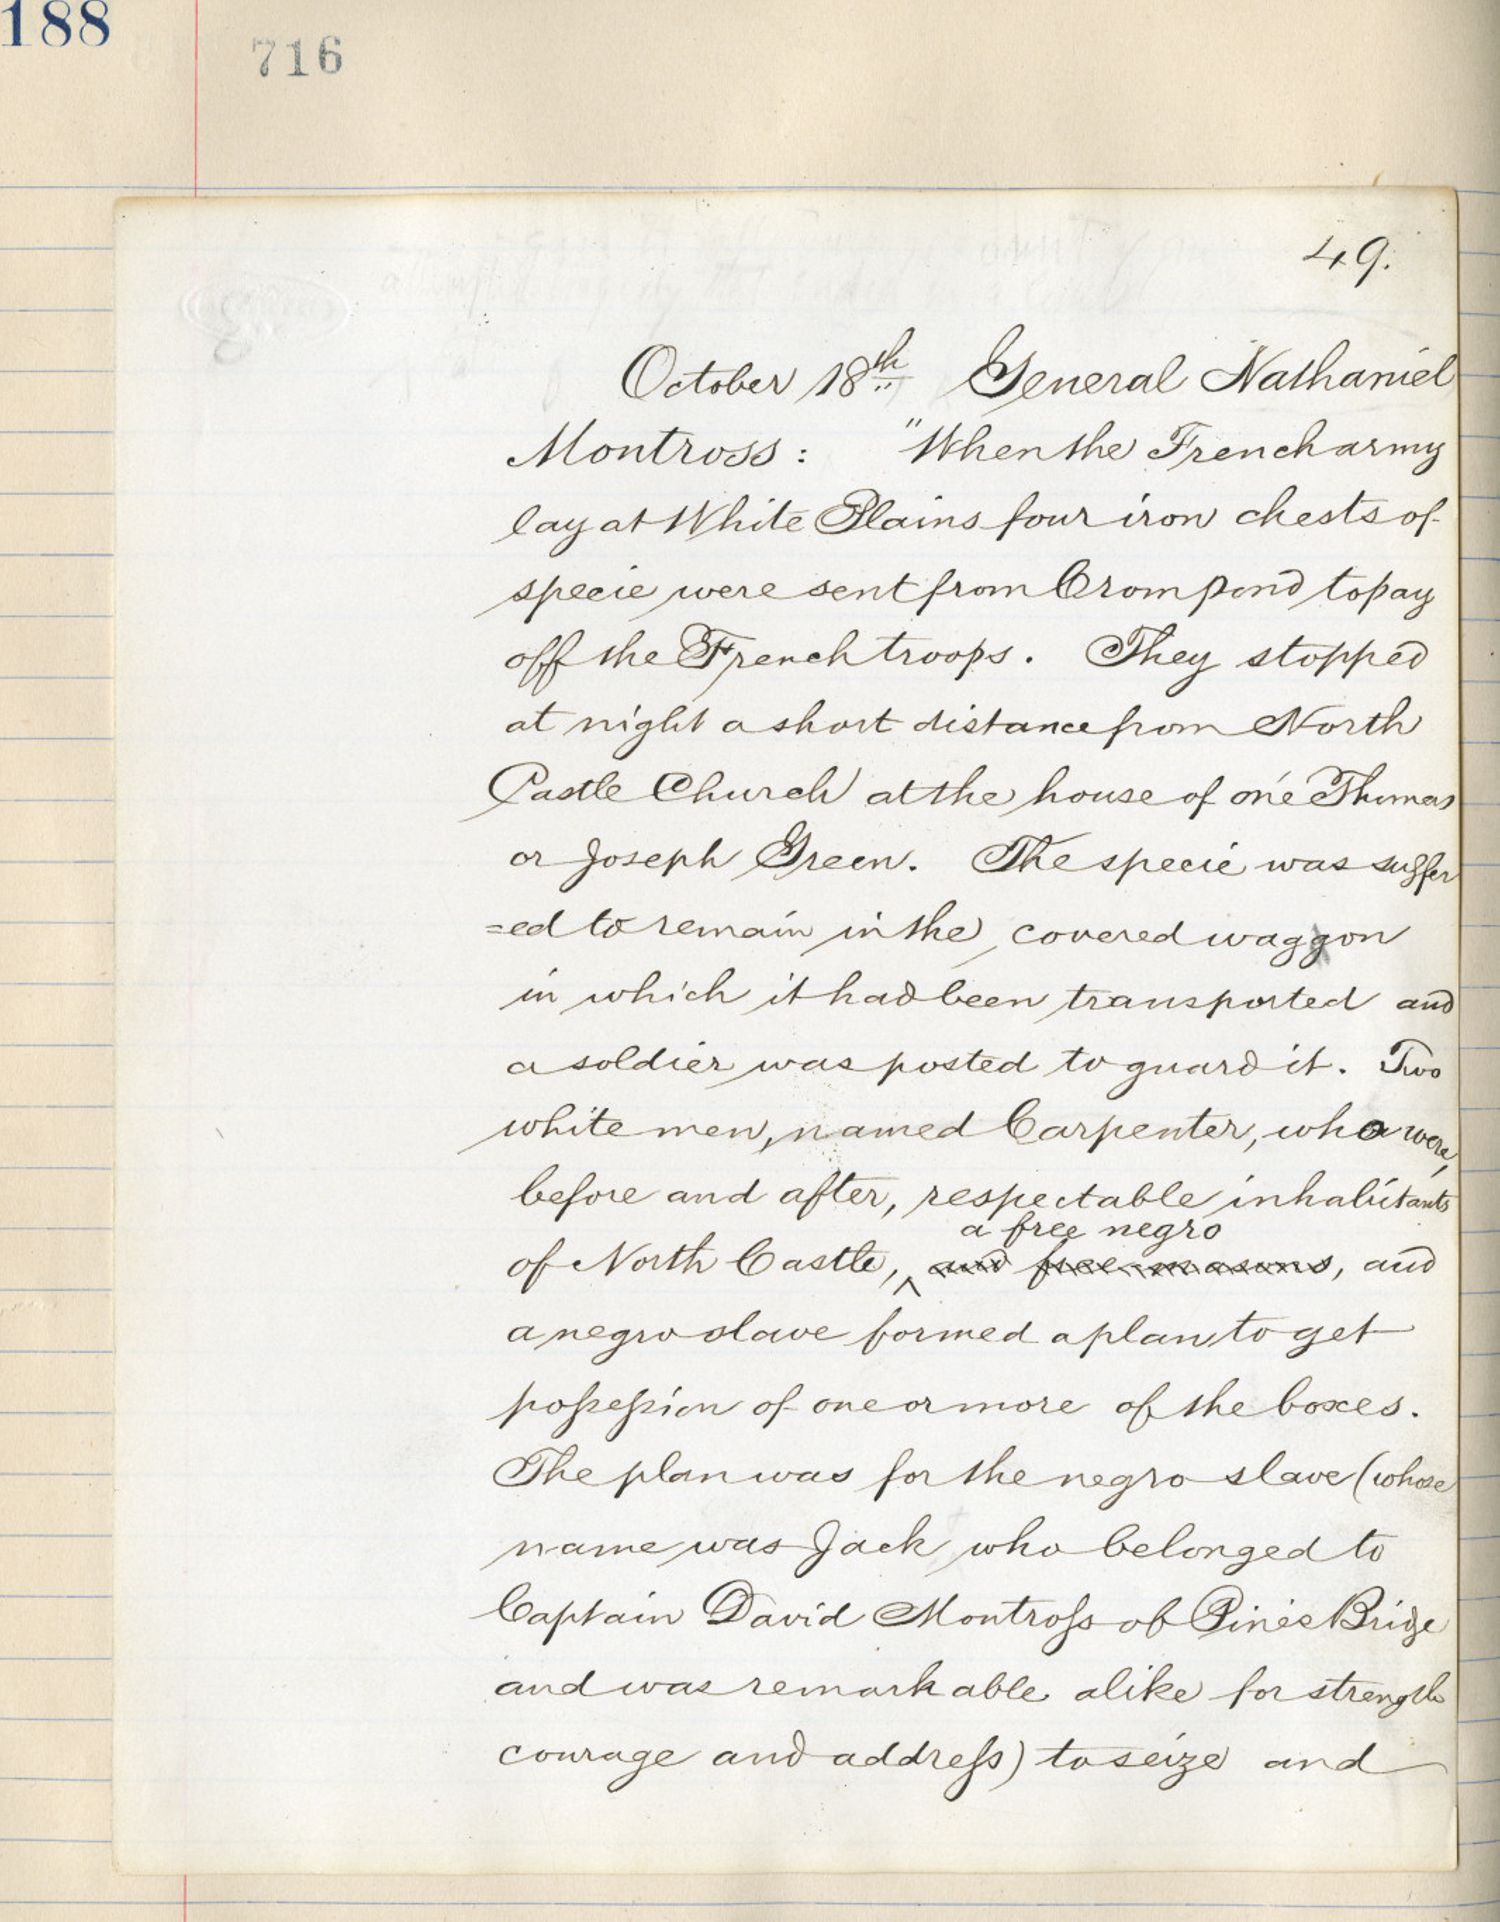 188
716
49.
October 18th General Nathaniel
Montross: "When the French army
lay at White Plains four iron chests of
specie were sent from Crompond to pay
off the French troops. They stopped
at night a short distance from North
Castle Church at the house of one Thomas
or Joseph Green. The specie was suffer
=ed to remain in the covered waggon
in which it had been transported and
a soldier was posted to guard it. Two
white men, named Carpenter, who were,
before and after, respectable inhabitants
a free negro
of North Castle, ^ and free-masons, and
a negro slave formed a plan to get
possession of one or more of the boxes.
The plan was for the negro slave (whose
name was Jack who belonged to
Captain David Montross of Pines Bridge
and was remarkable alike for strength
courage and address) to seize and